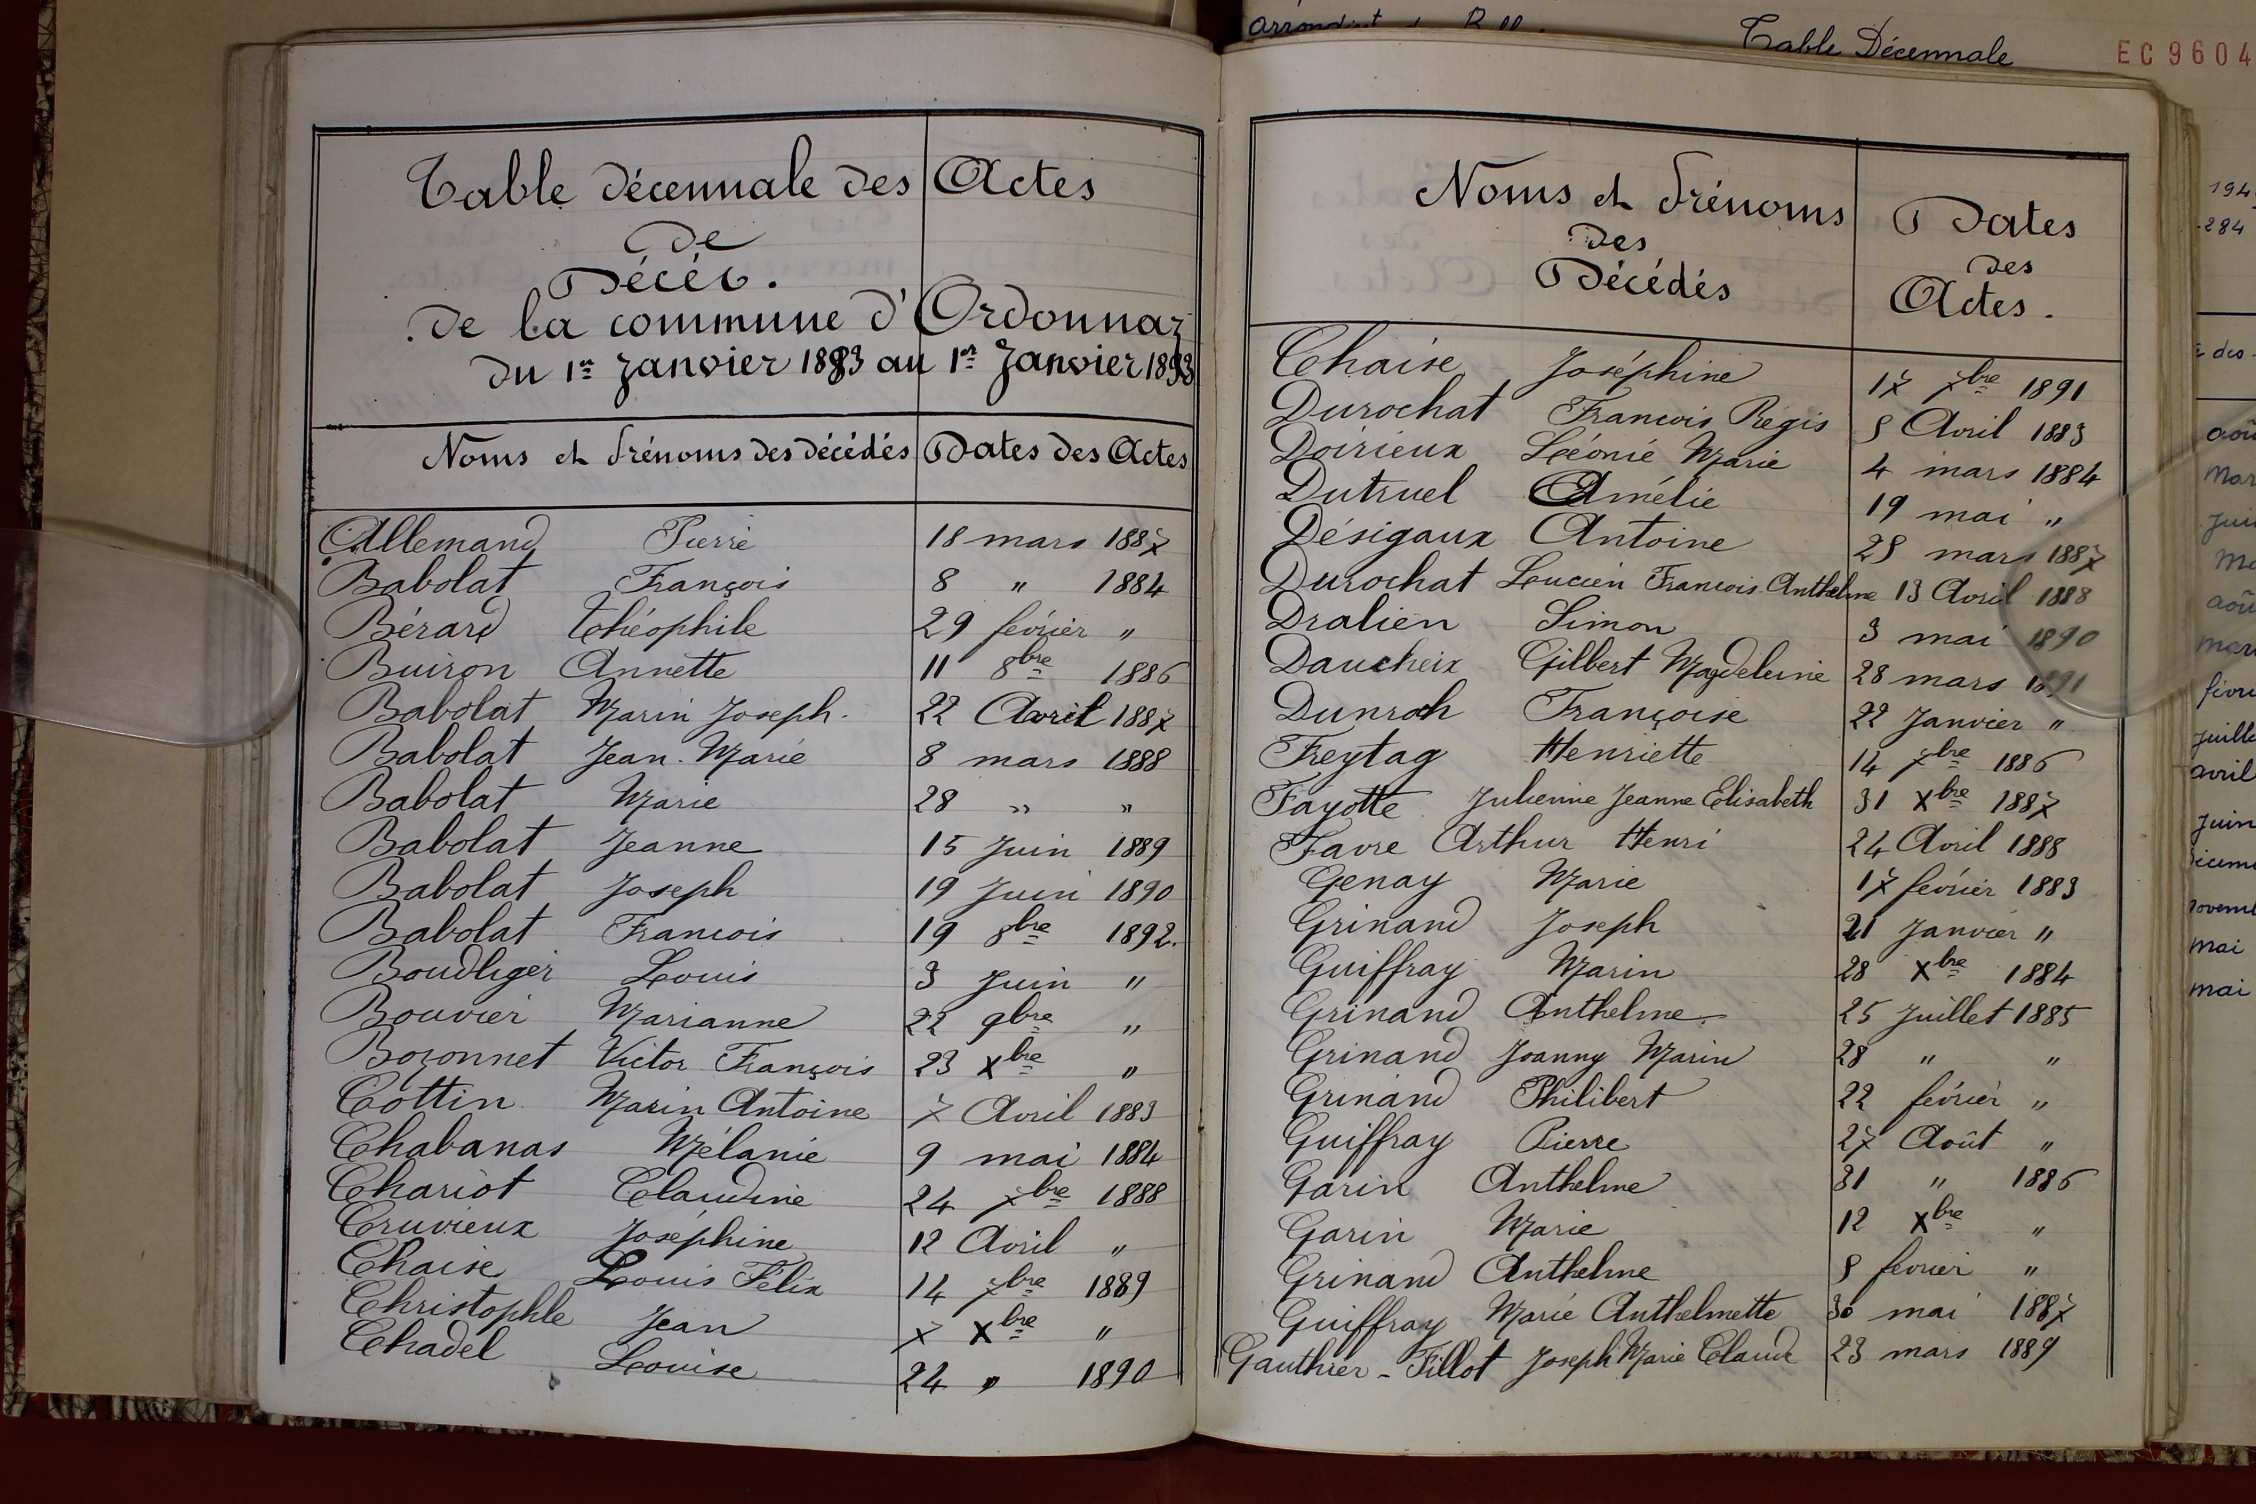 Table décennale des Actes
de
Décès.
de la commune d'Ordonnaz
du 1er Janvier 1883 au 1er Janvier 1893
Noms et Prénoms des décédés Dates des Actes
Allemand Pierre 18 mars 1887
Babolat François 8 " 1884
Bérard Théophile 29 février "
Buiron Annette 11 8bre 1886
Babolat Marin Joseph. 22 Avril 1887
Babolat Jean-Marie 8 mars 1888
Babolat Marie 28 " "
Babolat Jeanne 15 Juin 1889
Babolat Joseph 19 Juin 1890
Babolat Francois 19 8bre 1892.
Boudliger Louis 3 Juin "
Bouvier Marianne 22 9bre "
Bozonnet Victor François 23 Xbre "
Cottin Marin Antoine 7 Avril 1883
Chabanas Mélanie 9 mai 1884
Chariot Claudine 24 7bre 1888
Cruvieux Joséphine 12 Avril "
Chaise Louis Félix 14 7bre 1889
Christophle Jean 7 Xbre "
Chadel Louise 24 " 1890
arrondist
Table Décennale
EC9604
Noms et Prénoms
des
Décédés
Dates
des
Actes.
Chaise Joséphine 17 7bre 1891
Durochat Francois Régis 8 Avril 1883
Doirieux Léonie Marie 4 mars 1884
Dutruel Amélie 19 mai "
Désigaux Antoine 28 mars 1887
Durochat Lucien Francois Anthelme 13 Avril 1888
Dralien Simon 3 mai 1890
Daucheix Gilbert Magdeleine 28 mars 1891
Dunroh Françoise 22 Janvier "
Freytag Henriette 14 7bre 1886
Fayotte Julienne Jeanne Elisabeth 31 Xbre 1887
Favre Arthur Henri 24 Avril 1888
Genay Marie 17 février 1883
Grinand Joseph 21 Janvier "
Guiffray Marin 28 Xbre 1884
Grinand Anthelme 25 Juillet 1885
Grinand Joanny Marin 28 " "
Grinand Philibert 22 février "
Guiffray Pierre 27 Août "
Garin Anthelme 31 " 1886
Garin Marie 12 Xbre "
Grinand Anthelme 8 février "
Guiffray Marie Anthelmette 30 mai 1887
Gauthier-Fillot Joseph Marie Claude 23 mars 1889
194
284
des
juille
avril
juin
mai
mai